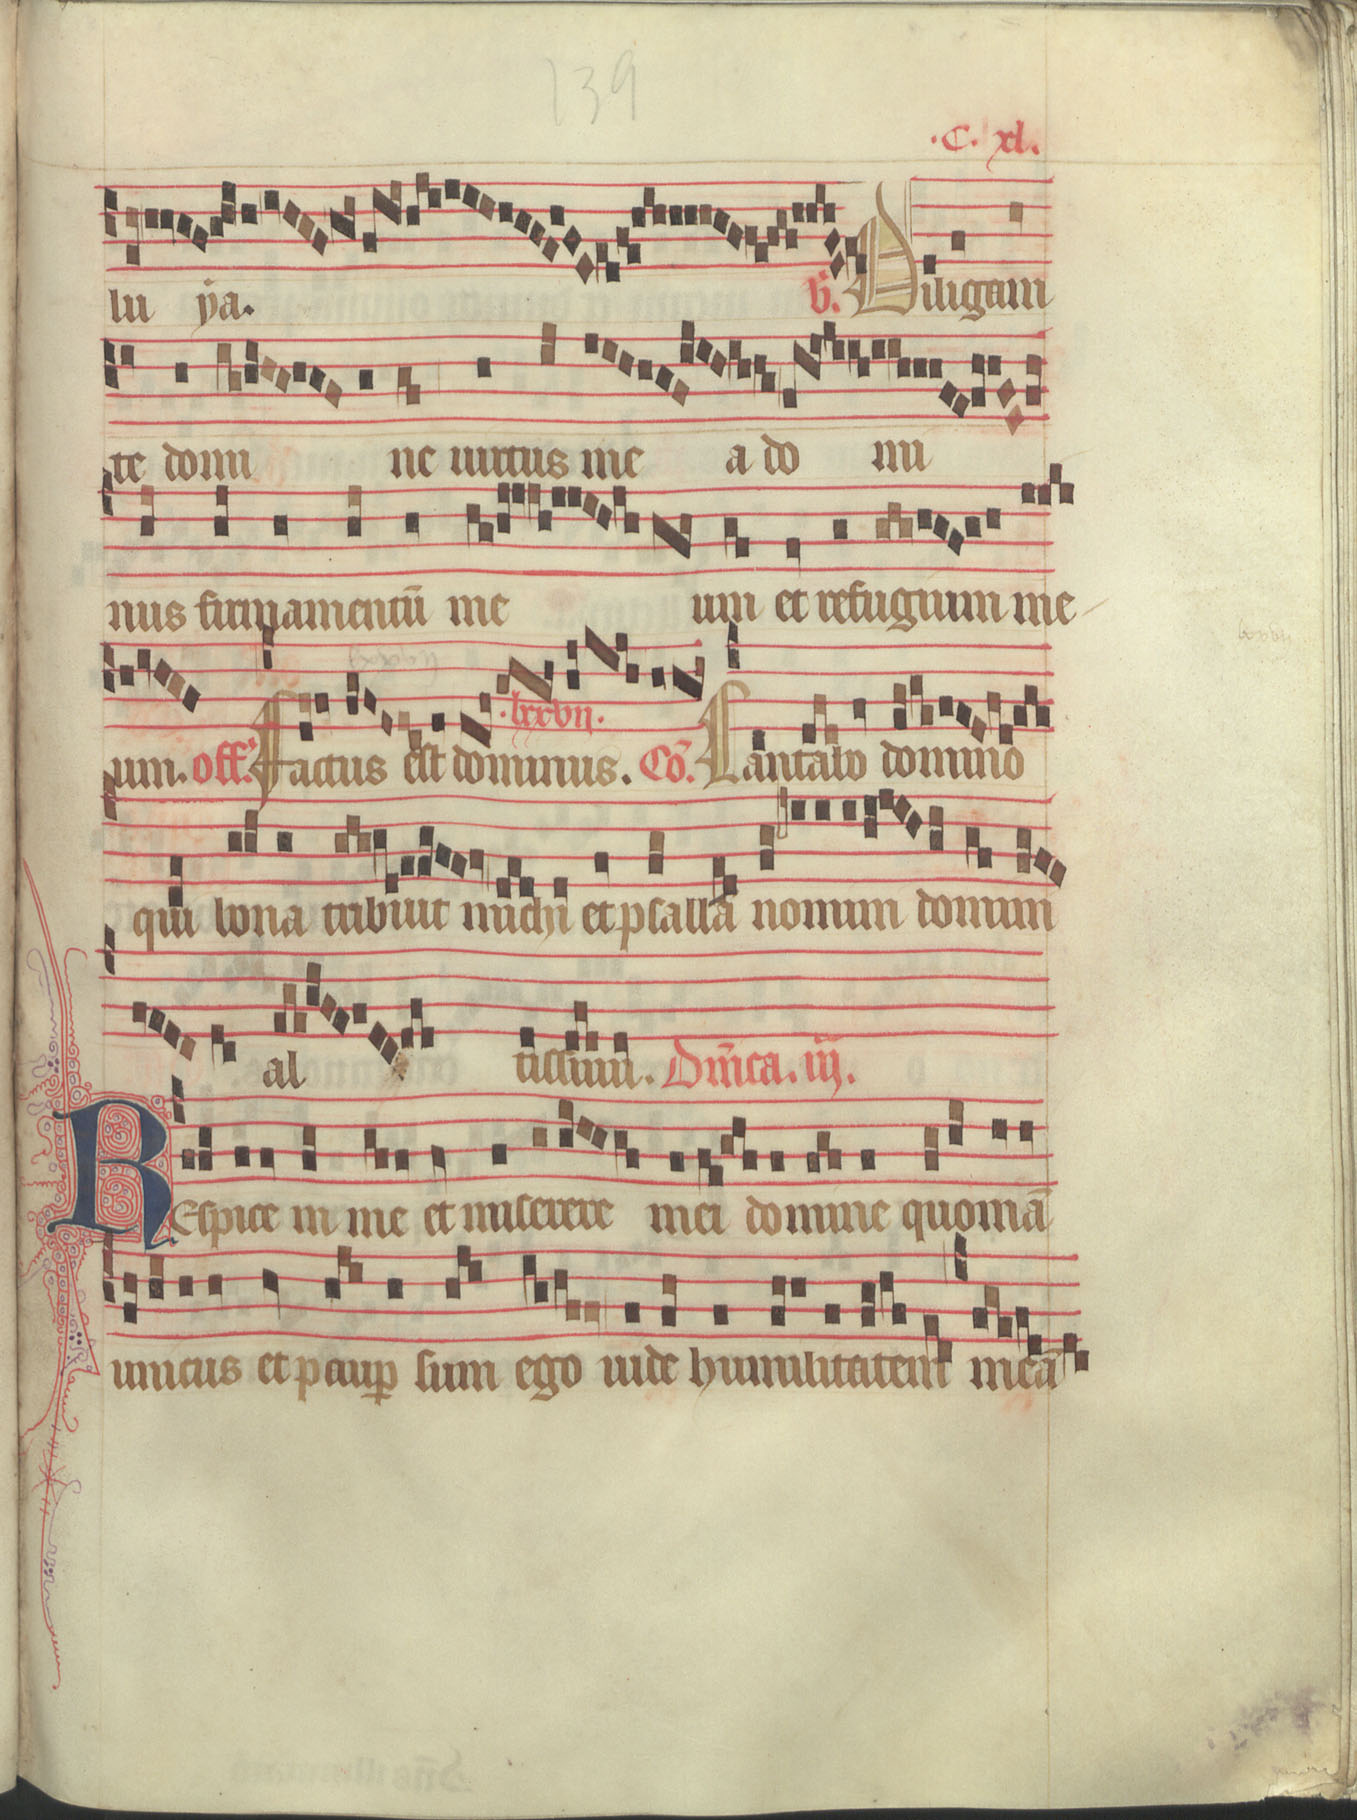 139
.C. xl.
lu ya. V. Diligam
te domi ne uirtus me a do mi
nus firmamentū me um et refugium me
um. off. Factus est dominus. .lxxvij. Cō. Cantabo domino
qui bona tribuit michi et psallā nomini domini
al tissimi. Dn̄ica. iij.
REspice in me et miserere mei domine quoniā
unicus et paup̄ sum ego uide humilitatem meā